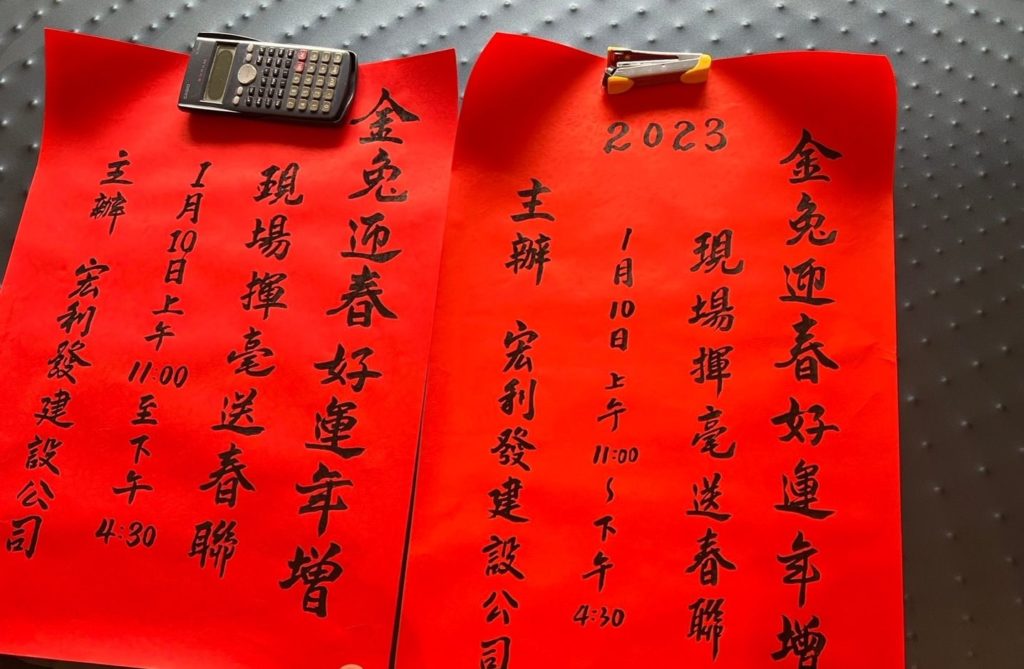 金兔迎春好運年增
現場揮毫送春聯
1月10日上午11:00至下午4:30
主辦 宏利發建設公司
2023
金兔迎春好運年增
現場揮毫送春聯
1月10日上午11:00~下午4:30
主辦 宏利發建設公司